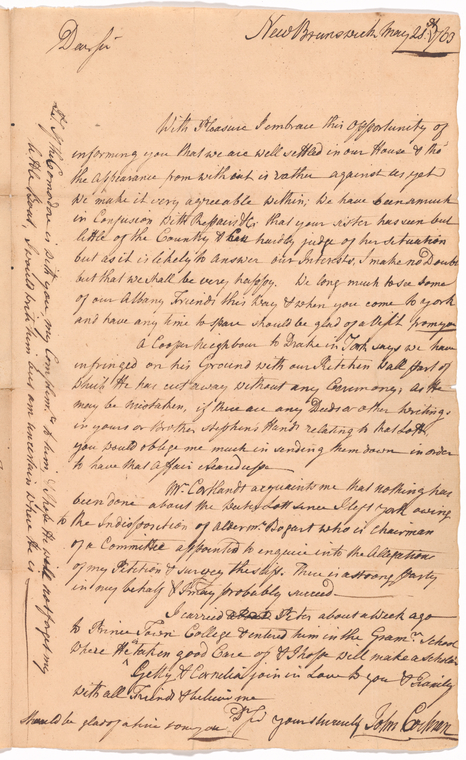 New Brunswick May 21st 1763
Dear Sir
With Pleasure I embrace this Opportunity of
informing you that we are well settled in our House & tho
the Appearance from without is rather against us, yet
we make it very agreeable within; We have been so much
in Confusion with Repairs &c that your sister has seen but
little of the Country & can hardly judge of her situation
but as it is likely to answer our Interests, I make no Doubt
but that we shall be very happy. We long much to see some
of our Albany Friends this Way & when you come to york
and have any time to spare should be glad of a Visit from you
A Cooper Neighbour to Drake in York says we have
infringed on his Ground with our Kitchen Wall part of
which He has cut away without any Ceremony; as He
may be mistaken, if there are any Deeds or other writings
in yours or Brother Stephen's Hands relating to that Lott,
you would oblige me much in sending them down in order
to have that Affair
Mr. Cortlandt acquaints me that nothing has
been done about the Lott since I left york owing
to the Indisposition of alderm. Bogart who is Chairman
of a Committee appointed to enquire into the Allegations
of my Petition & survey the slip. There is a strong party
in my behalf & I may probably succeed
I carried Peter about a week ago
to Prince Town College & entered him in the Gramr. School
where He taken good Care of & I hope will make a Scholar
Getty & Cornelia join in Love to you & Family
with all Friends & believe me
Dr. Sr. yours sincerely John
should be glad of a line from you
P.S. If the Comodore is with you, my Complemts. to him, I hope He will not forget my
little Boat, I would write him but am uncertain where He is